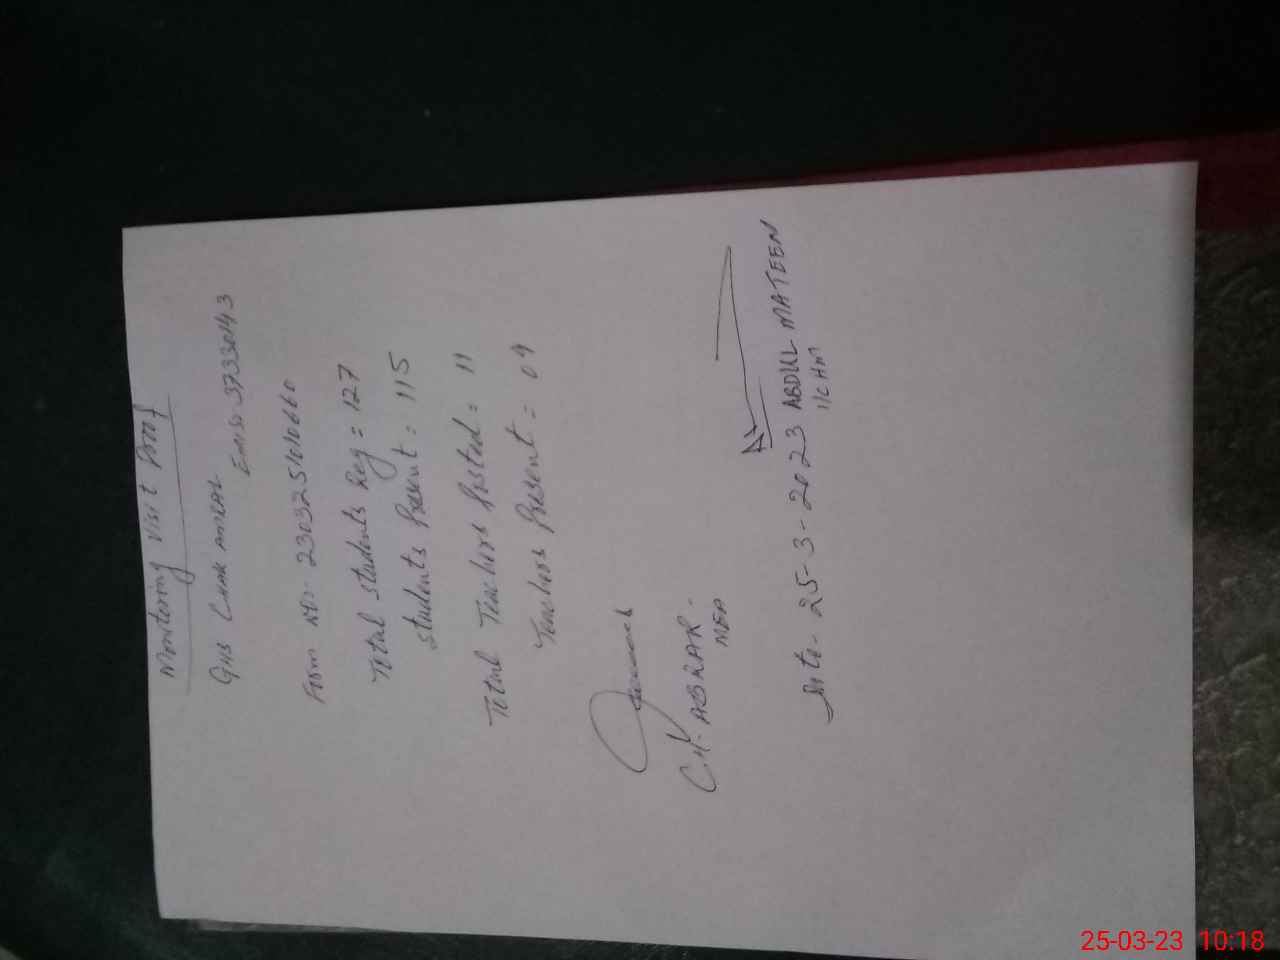 Monitoring Visit Proof
GHS CHAK AMRAL
EMIS: 37330143
Form No:- 230325101066
Total students Reg = 127
Students Present = 115
Total Teachers Posted = 11
Teachers Present = 09
CH. ABRAR.
MEA
ABDUL MATEEN
I/C HM
Date:- 25-3-2023
25-03-23 10:18